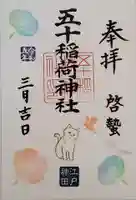 奉拝
啓蟄
五十稲荷神社
三月吉日
江戸
神田